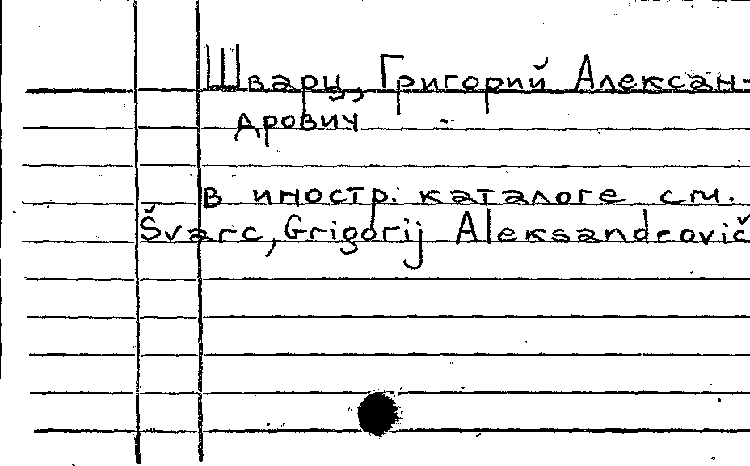 Шварц, Григорий Алексан-
дрович
в иностр. каталоге см.
Švarc, Grigorij Aleksandrovič